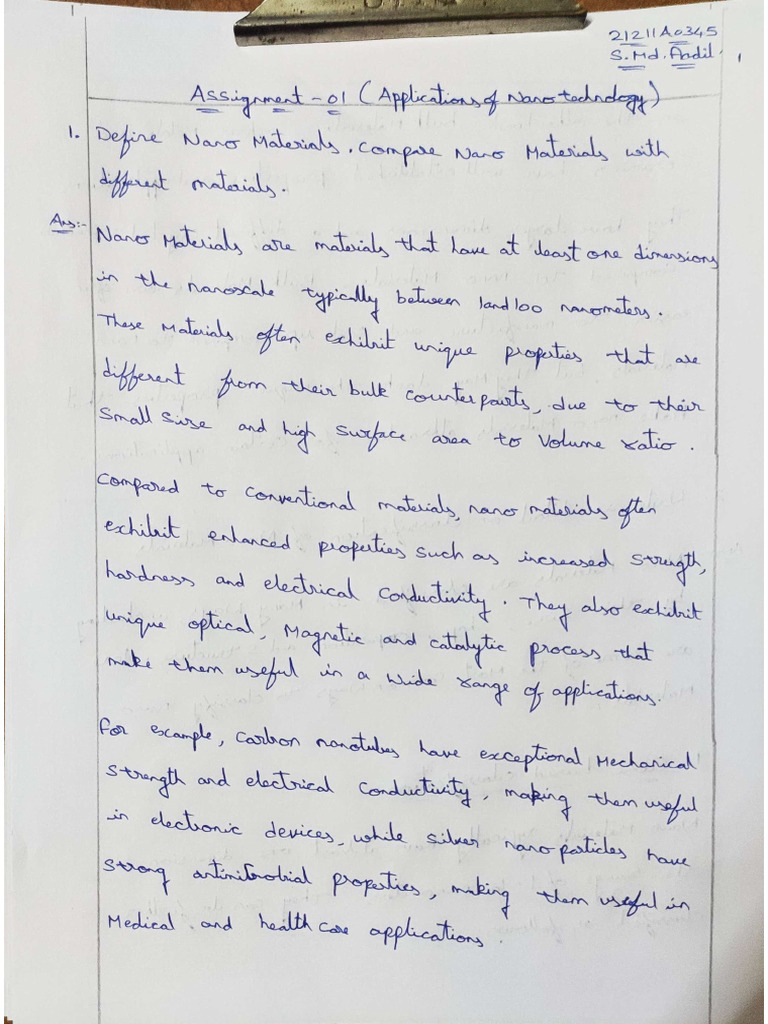 21211A0345
S.Md. Aadil
1
Assignment - 01 (Applications of Nano technology)
1. Define Nano Materials. Compare Nano Materials with
different materials.
Ans:- Nano Materials are materials that have at least one dimensions
in the nanoscale typically between 1 and 100 nanometers.
These Materials often exhibit unique properties that are
different from their bulk counterparts, due to their
Small Size and high surface area to Volume ratio.
Compared to conventional materials, nano materials often
exhibit enhanced properties such as increased strength,
hardness and electrical conductivity. They also exhibit
unique optical, Magnetic and catalytic process that
make them useful in a wide range of applications.
For example, Carbon nanotubes have exceptional Mechanical
Strength and electrical Conductivity, making them useful
in electronic devices, while silver nano particles have
strong antimicrobial properties, making them useful in
Medical and health care applications.